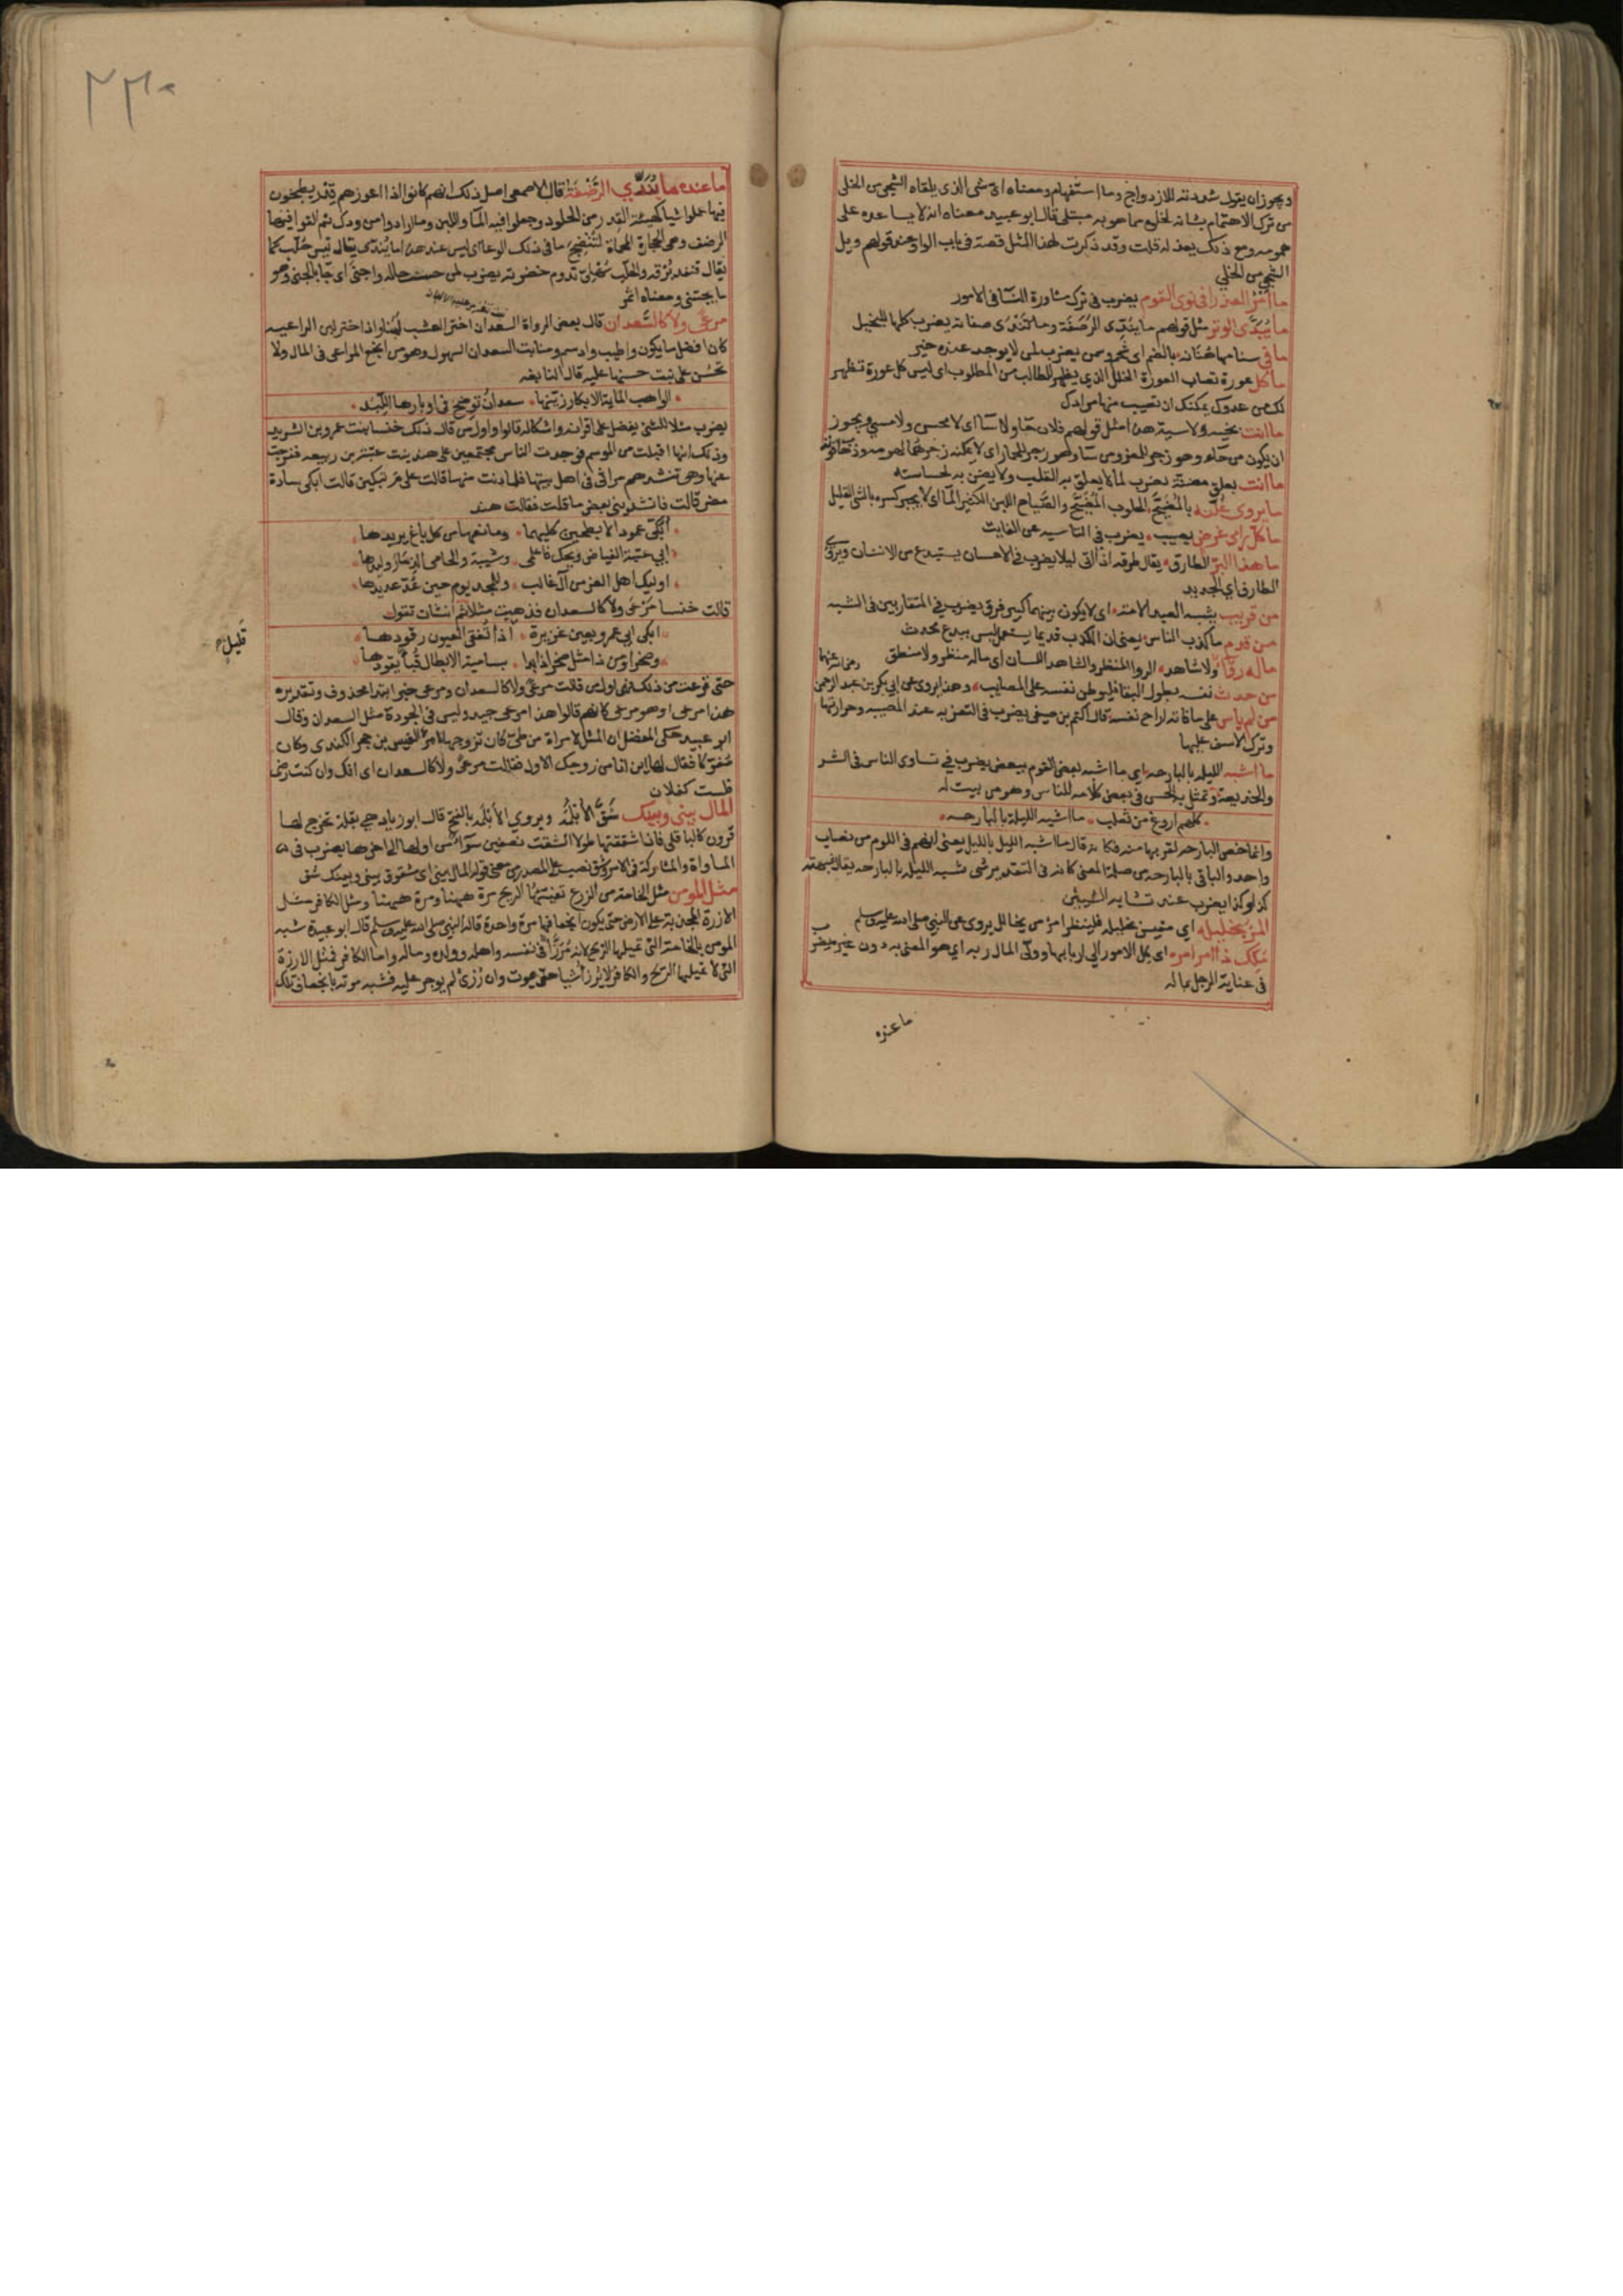 ويجوز ان يقول شددته للازدواج وما استفهام ومعناه اي شي الذي يلقاه الشجي من الخلي
من ترك الاهتمام بشانه لخلوه مما هو به مبتلى قال ابو عبيد معناه انه لا يساعده على
همومه ومع ذلك يعذله قلت وقد ذكرت لهذا المثل قصة في باب الواو عند قولهم ويل
الشجي من الخلي
ما امر العذرا في نوى القوم يضرب في ترك مشاورة النسا في الامور
ما يندى الوتر مثل قولهم ما يندى الرضفة وما تندى صفاته يضرب كلها للبخيل
ما في سنامها هنانه بالضم اي شحم وسمن يضرب لمن لا يوجد عنده خير
ما كل عورة تصاب العورة الخلل الذي يظهر للطالب من المطلوب اي ليس كل عورة تظهر
لك من عدوك يمكنك ان تصيب منها مرادك
ما انت بخيسه ولا سيه هذا مثل قولهم فلان حا ولا سا اي لا محسن ولا مسي ويجوز
ان يكون من حاء وهو زجر للمعز ومن سا وهو زجر للحمار اي لا يمكنه زجرهما لهرمه وذهاب قوته
ما انت بعلق مضنة يضرب لما لا يعلق به القلب ولا يضن به لخساسته
ما يروى غلته بالمضيح الحلوب المضيح والضياح اللبن الكثير الما اي لا يجبر كسره بالشي القليل
ما كل رامي غرض يصيب يضرب في التاسية عن الفايت
ما هذا البر الطارق يقال طرقه اذا اتى ليلا يضرب في الاحسان يستبدع من الانسان ويروى
الطارف اي الجديد
من قريب يشبه العبد الامة اي لا يكون بينهما كبير فرق يضرب في المتقاربين في الشبه
من قدم ما كذب الناس يعني ان الكذب قديما يستعمل ليس ببدع محدث
ماله رواء ولا شاهد الروا المنظر والشاهد اللسان اي ماله منظر ولا منطق
من حدث نفسه بطول البقا فليوطن نفسه على المصايب وهذا يروى عن ابي بكر بن عبد الرحمن رضي الله عنهما
من لم ياس على ما فاته اراح نفسه قال اكثم بن صيفي يضرب في التعزيه عند المصيبه وحرارتها
وترك الاسف عليها
ما اشبه الليله بالبارحه اي ما اشبه بعض القوم ببعض يضرب في تساوى الناس في الشر
والخديعة وتمثل به الحسن في بعض كلامه للناس وهو من بيت له
كلهم اروغ من ثعلب ما اشبه الليلة بالبارحه
وانما خص البارحه لقربها منه فكانه قال ما اشبه الليل بالليل يعني انهم في اللوم من نصاب
واحد والباقي بالبارحه من صلة المعنى كانه في التقدير شي شبيه الليله بالبارحه يقال شبهته
كذا وكذا يضرب عند تشابه الشيئين
المرء بخليله اي مقيس بخليله فلينظر امرؤ من يخالل يروى عن النبي صلى الله عليه وسلم
ملك ذا امر امره اي كل الامور الى اربابها وولّ المال ربه اي هو المعنى به دون غيره يضرب
في عناية الرجل بماله
ماعنده
٢٣٠
ما عنده ما يندي الرضفة قال الاصمعي اصل ذلك انهم كانوا اذا اعوزهم قدر يطبخون
فيها عملوا شيا كهيئة القدر من الجلود وجعلوا فيه الما واللبن وما ارادوا من ودك ثم القوا فيها
الرضف وهي الحجارة المحماة لتنضج ما في ذلك الوعا اي ليس عند هذا ما يندي
ما يجتني ومعناه اثمر
مرعى ولا كالسعدان قال بعض الرواة السعدان اخثر العشب لبنا واذا خثر لبن الراعيه
كان افضل ما يكون واطيب وادسم ومنابت السعدان السهول وهو من انجع المراعي في المال ولا
تحسن على نبت حسنها عليه قال النابغه
الواهب الماية الابكار زينها سعدان توضح في اوبارها اللبد
يضرب مثلا للشي يفضل على اقرانه واشكاله قالوا واول من قال ذلك خنسا بنت عمرو بن الشريد
وذلك انها اقبلت من الموسم فوجدت الناس مجتمعين على هند بنت عتبة بن ربيعه ففرجت
عنها وهي تنشدهم مراثي في اهل بيتها فلما دنت منها قالت على من تبكين قالت ابكي سادة
مضر قالت فانشديني بعض ما قلت فقالت هند
ابكي عمود الابطحين كليهما ومانعها من كل باغ يريدها
ابي عتبة الفياض ويحك فاعلمي وشيبة والحامي الذمار وليدها
اوليك اهل العز من آل غالب وللمجد يوم حين عد عديدها
قالت خنسا مرعى ولا كالسعدان فذهبت مثلا ثم انشات تقول
ابكي ابي عمرو بعين غزيرة اذا تغفى العيون رقودها
قليل
وصخرا ومن ذا مثل صخر اذا بدا بساحة الابطال قبا يقودها
حتى فرغت من ذلك فهي اول من قالت مرعى ولا كالسعدان ومرعى خبر ابتدا محذوف وتقديره
هذا مرعى او هو مرعى كانهم قالوا هذا مرعى جيد وليس في الجودة مثل السعدان وقال
ابو عبيد حكى المفضل ان المثل لامراة من طي كان تزوجها امرؤ القيس بن حجر الكندى وكان
مفركا فقال لها اين انا من زوجك الاول فقالت مرعى ولا كالسعدان اي انك وان كنت رضى
فلست كفلان
المال بيني وبينك شق الابلمة ويروي الابلمة بالفتح قال ابو زياد هي بقلة تخرج لها
قرون كالباقلى فاذا شققتها طولا انشقت نصفين سوآ من اولها الى اخرها يضرب في
المساواة والمشاركة في الامر وشق نصب على المصدر من معنى قوله المال بيني اي مشقوق بيني وبينك شق
مثل المومن مثل الخامة من الزرع تفيئها الريح مرة ههنا ومرة ههنا ومثل الكافر مثل
الارزة المجذية على الارض حتى يكون انجعافها مرة واحدة قاله النبي صلى الله عليه وسلم قال ابو عبيدة شبه
المومن بالخامة التي تميلها الريح لانه مرزا في نفسه واهله وولده وماله واما الكافر فمثل الارزة
التي لا تميلها الريح والكافر لا يرزا شيا حتى يموت وان رزئ لم يوجر عليه فشبه موته بانجعاف تلك